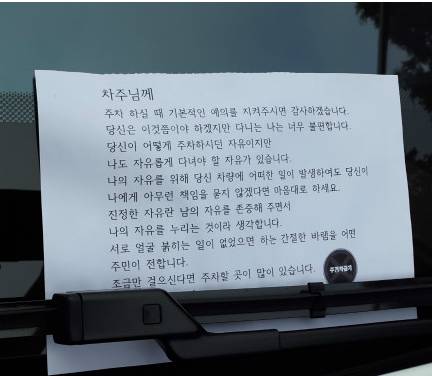 차주님께
주차 하실 때 기본적인 예의를 지켜주시면 감사하겠습니다.
당신은 이것쯤이야 하겠지만 다니는 나는 너무 불편합니다.
당신이 어떻게 주차하시던 자유이지만
나도 자유롭게 다녀야 할 자유가 있습니다.
나의 자유를 위해 당신 차량에 어떠한 일이 발생하여도 당신이
나에게 아무런 책임을 묻지 않겠다면 마음대로 하세요.
진정한 자유란 남의 자유를 존중해 주면서
나의 자유를 누리는 것이라 생각합니다.
서로 얼굴 붉히는 일이 없었으면 하는 간절한 바램을 어떤
주민이 전합니다.
조금만 걸으신다면 주차할 곳이 많이 있습니다.